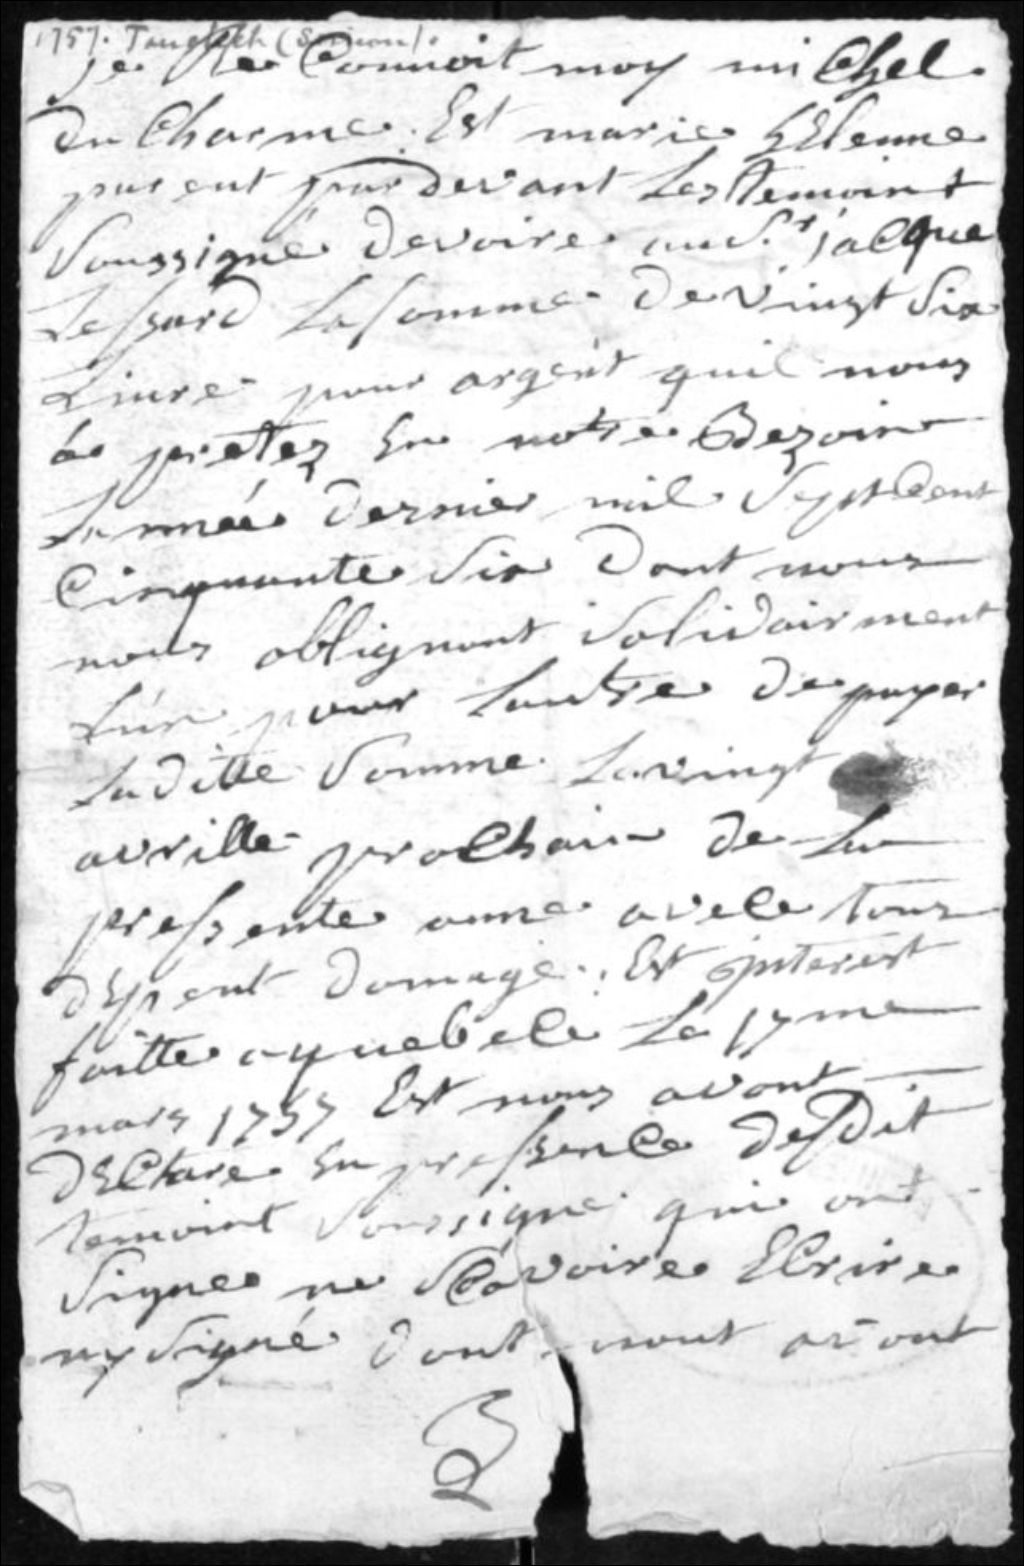 1757. Tauglich (Simon).
je Re Connoit moy mi Chel
du Charme. Est marie hElenne
parent par devant Les temoint
Soussigné devoire au S.r jacque
Lessard La somme de vingt Six
Livre pour argent quil nous
a pretez En notre Bezoin
Lannée dernier mil Sept Cent
Cinquante Six Dont nous
nous oblignont Solidairment
Lun pour Lautre de payer
La ditte Somme Le vingt
avrille prochain de La
pressente anne avece tous
dEpent domage. Est jnterest
faitte a quebece Le 17me
mars 1757 Est nous avont
dEClare En pressence desdit
temoint Soussigne qui ont
Signe ne SCavoire ECrire
ny Signé dont nout avont